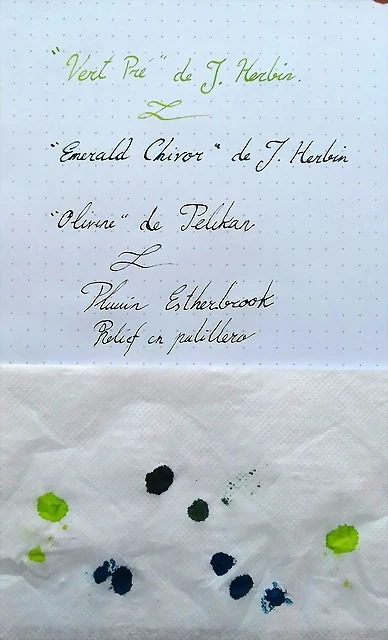 "Vert Pré" de J. Herbin.
"Emerald Chivor" de J. Herbin
"Olivine" de Pelikan
Plumín Estherbrook
Relief en palillero